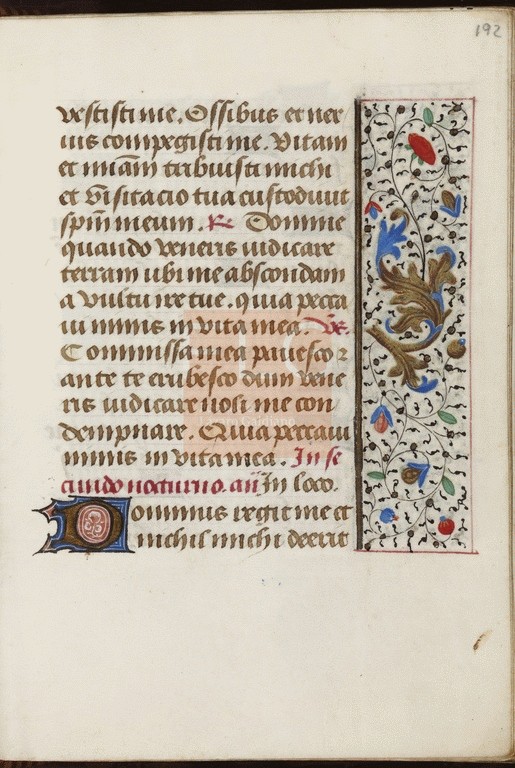 192
vestisti me. Ossibus et ner
uis compegisti me. Vitam
et miām tribuisti michi
et visitacio tua custodiuit
spm̄ meum. R. Domine
quando veneris iudicare
terram ubi me abscondam
a vultu ire tue. quia pecca
ui nimis in vita mea. Vs.
Commissa mea pauesco ꝛ
ante te erubesco dum vene
ris iudicare noli me con
dempnare. Quia peccaui
nimis in vita mea. In se
cundo nocturno. an̄ In loco.
Dominus regit me et
nichil michi deerit